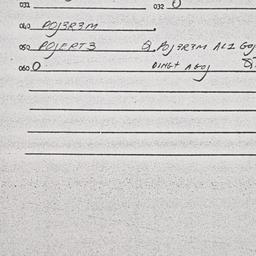 031 032 0
040 POJ3R3M
050 POJERT3 Q. POJ3R3M AL2 GOJ
060 0 DING+ AGOJ